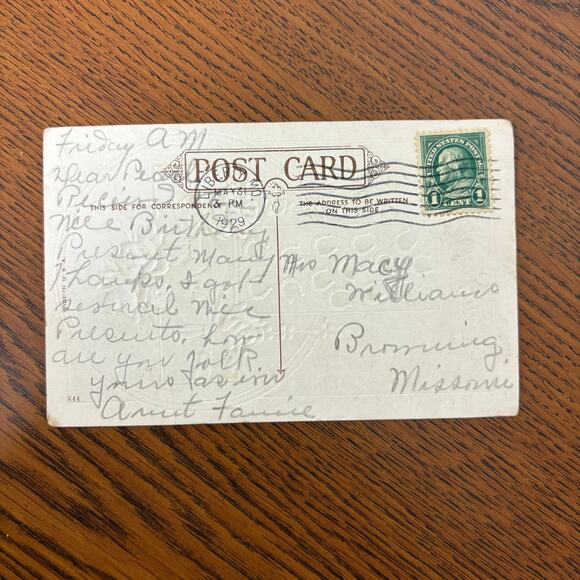 Friday AM
Dear
POST CARD
THIS SIDE FOR CORRESPONDENCE
THE ADDRESS TO BE WRITTEN
ON THIS SIDE
MAY 31
PM
1929
UNITED STATES POSTAGE
1 CENT 1
nice Birthday
Present Many
thanks, I got
several nice
Presents, how
are you folk
yours as ever
Aunt Fannie
Mrs Macy
Williams
Browning,
Missouri
MADE IN U.S.A.
844